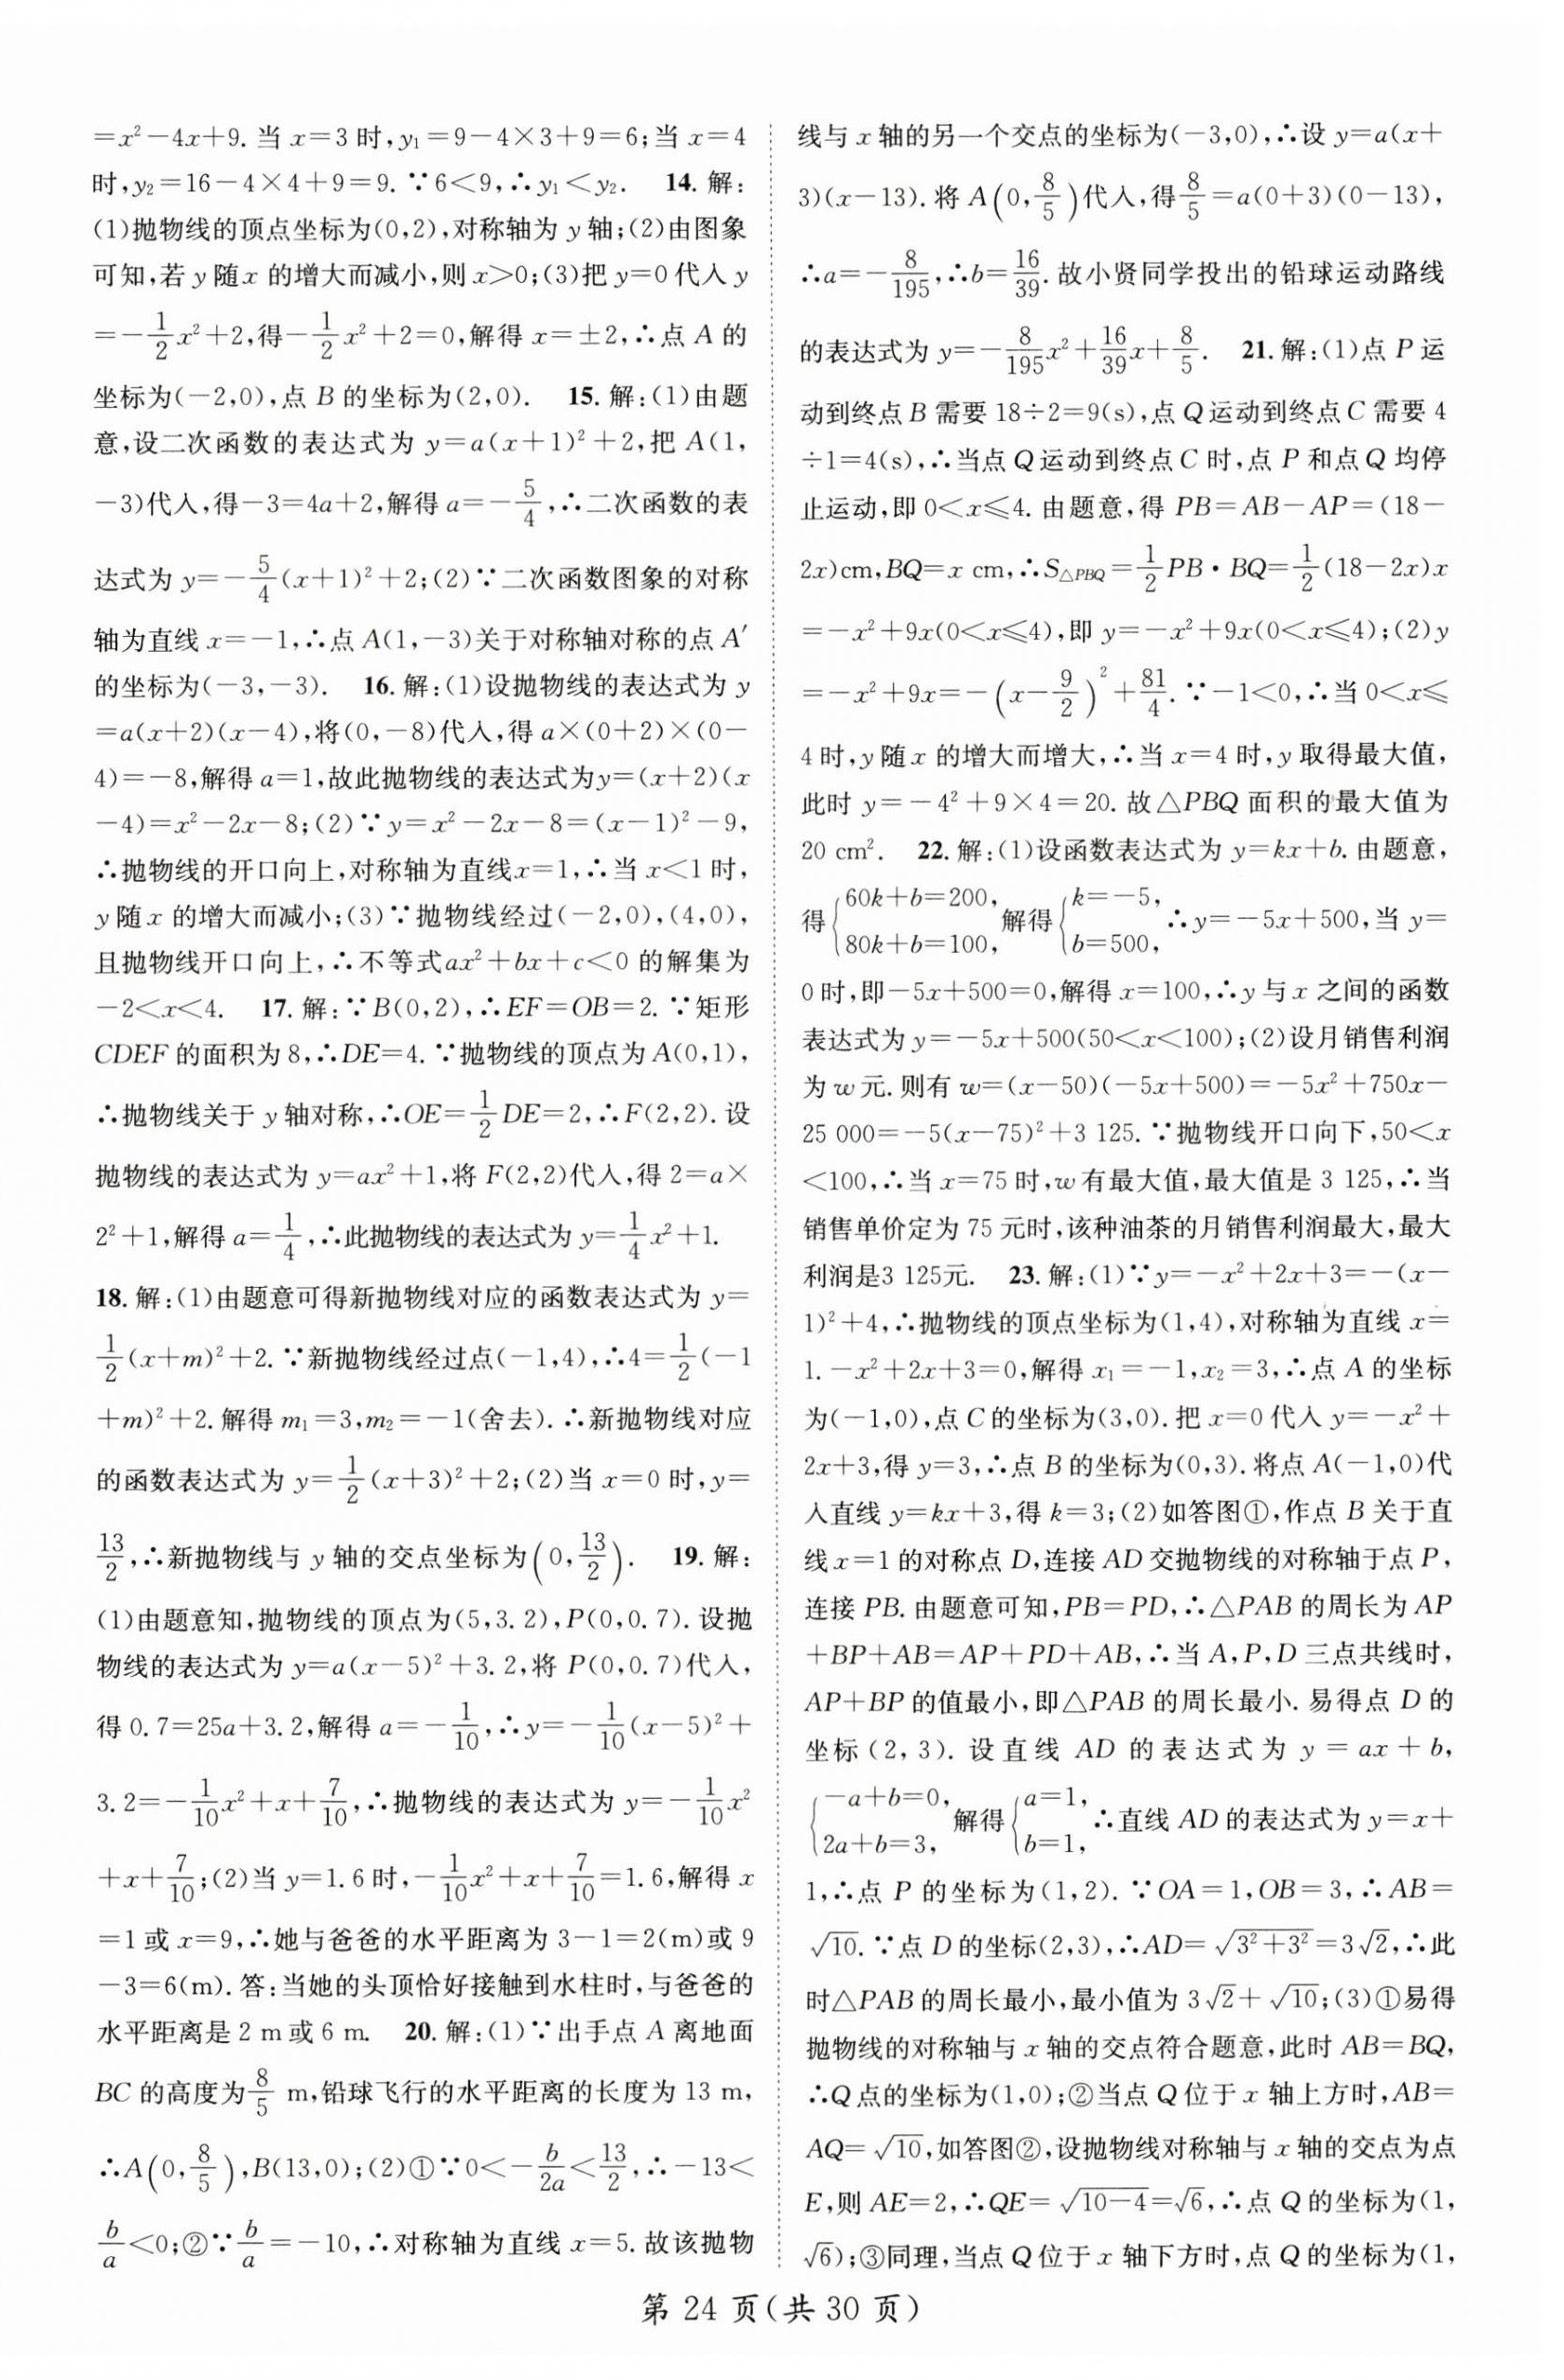 =x²-4x+9. 当 x=3 时,y₁=9-4×3+9=6;当 x=4
时,y₂=16-4×4+9=9. ∵6<9,∴y₁<y₂. 14. 解:
(1)抛物线的顶点坐标为(0,2),对称轴为 y 轴;(2)由图象
可知,若 y 随 x 的增大而减小,则 x>0;(3)把 y=0 代入 y
=-1/2x²+2,得-1/2x²+2=0,解得 x=±2,∴点 A 的
坐标为(-2,0),点 B 的坐标为(2,0). 15. 解:(1)由题
意,设二次函数的表达式为 y=a(x+1)²+2,把 A(1,
-3)代入,得-3=4a+2,解得 a=-5/4,∴二次函数的表
达式为 y=-5/4(x+1)²+2;(2)∵二次函数图象的对称
轴为直线 x=-1,∴点 A(1,-3)关于对称轴对称的点 A′
的坐标为(-3,-3). 16. 解:(1)设抛物线的表达式为 y
=a(x+2)(x-4),将(0,-8)代入,得 a×(0+2)×(0-
4)=-8,解得 a=1,故此抛物线的表达式为y=(x+2)(x
-4)=x²-2x-8;(2)∵y=x²-2x-8=(x-1)²-9,
∴抛物线的开口向上,对称轴为直线x=1,∴当 x<1 时,
y 随 x 的增大而减小;(3)∵抛物线经过(-2,0),(4,0),
且抛物线开口向上,∴不等式ax²+bx+c<0 的解集为
-2<x<4. 17. 解:∵B(0,2),∴EF=OB=2. ∵矩形
CDEF 的面积为 8,∴DE=4. ∵抛物线的顶点为 A(0,1),
∴抛物线关于 y 轴对称,∴OE=1/2DE=2,∴F(2,2). 设
抛物线的表达式为 y=ax²+1,将 F(2,2)代入,得 2=a×
2²+1,解得 a=1/4,∴此抛物线的表达式为 y=1/4x²+1.
18. 解:(1)由题意可得新抛物线对应的函数表达式为 y=
1/2(x+m)²+2. ∵新抛物线经过点(-1,4),∴4=1/2(-1
+m)²+2. 解得 m₁=3,m₂=-1(舍去). ∴新抛物线对应
的函数表达式为 y=1/2(x+3)²+2;(2)当 x=0 时,y=
13/2,∴新抛物线与 y 轴的交点坐标为(0,13/2). 19. 解:
(1)由题意知,抛物线的顶点为(5,3.2),P(0,0.7). 设抛
物线的表达式为 y=a(x-5)²+3.2,将 P(0,0.7)代入,
得 0.7=25a+3.2,解得 a=-1/10,∴y=-1/10(x-5)²+
3.2=-1/10x²+x+7/10,∴抛物线的表达式为 y=-1/10x²
+x+7/10;(2)当 y=1.6 时,-1/10x²+x+7/10=1.6,解得 x
=1 或 x=9,∴她与爸爸的水平距离为 3-1=2(m)或 9
-3=6(m). 答:当她的头顶恰好接触到水柱时,与爸爸的
水平距离是 2 m 或 6 m. 20. 解:(1)∵出手点 A 离地面
BC 的高度为8/5 m,铅球飞行的水平距离的长度为 13 m,
∴A(0,8/5),B(13,0);(2)①∵0<-b/2a<13/2,∴-13<
b/a<0;②∵b/a=-10,∴对称轴为直线 x=5. 故该抛物
线与 x 轴的另一个交点的坐标为(-3,0),∴设 y=a(x+
3)(x-13). 将 A(0,8/5)代入,得8/5=a(0+3)(0-13),
∴a=-8/195,∴b=16/39. 故小贤同学投出的铅球运动路线
的表达式为 y=-8/195x²+16/39x+8/5. 21. 解:(1)点 P 运
动到终点 B 需要 18÷2=9(s),点 Q 运动到终点 C 需要 4
÷1=4(s),∴当点 Q 运动到终点 C 时,点 P 和点 Q 均停
止运动,即 0<x≤4. 由题意,得 PB=AB-AP=(18-
2x)cm,BQ=x cm,∴S△PBQ=1/2PB·BQ=1/2(18-2x)x
=-x²+9x(0<x≤4),即 y=-x²+9x(0<x≤4);(2)y
=-x²+9x=-(x-9/2)²+81/4. ∵-1<0,∴当 0<x≤
4 时,y 随 x 的增大而增大,∴当 x=4 时,y 取得最大值,
此时 y=-4²+9×4=20. 故△PBQ 面积的最大值为
20 cm². 22. 解:(1)设函数表达式为 y=kx+b. 由题意,
得{60k+b=200, 80k+b=100, 解得{k=-5, b=500, ∴y=-5x+500,当 y=
0 时,即-5x+500=0,解得 x=100,∴y 与 x 之间的函数
表达式为 y=-5x+500(50<x<100);(2)设月销售利润
为 w 元. 则有 w=(x-50)(-5x+500)=-5x²+750x-
25 000=-5(x-75)²+3 125. ∵抛物线开口向下,50<x
<100,∴当 x=75 时,w 有最大值,最大值是 3 125,∴当
销售单价定为 75 元时,该种油茶的月销售利润最大,最大
利润是3 125元. 23. 解:(1)∵y=-x²+2x+3=-(x-
1)²+4,∴抛物线的顶点坐标为(1,4),对称轴为直线 x=
1. -x²+2x+3=0,解得 x₁=-1,x₂=3,∴点 A 的坐标
为(-1,0),点 C 的坐标为(3,0). 把 x=0 代入 y=-x²+
2x+3,得 y=3,∴点 B 的坐标为(0,3). 将点 A(-1,0)代
入直线 y=kx+3,得 k=3;(2)如答图①,作点 B 关于直
线 x=1 的对称点 D,连接 AD 交抛物线的对称轴于点 P,
连接 PB. 由题意可知,PB=PD,∴△PAB 的周长为 AP
+BP+AB=AP+PD+AB,∴当 A,P,D 三点共线时,
AP+BP 的值最小,即△PAB 的周长最小. 易得点 D 的
坐标(2,3). 设直线 AD 的表达式为 y=ax+b,
{-a+b=0, 2a+b=3, 解得{a=1, b=1, ∴直线 AD 的表达式为 y=x+
1,∴点 P 的坐标为(1,2). ∵OA=1,OB=3,∴AB=
√10. ∵点 D 的坐标(2,3),∴AD=√(3²+3²)=3√2,∴此
时△PAB 的周长最小,最小值为 3√2+√10;(3)①易得
抛物线的对称轴与 x 轴的交点符合题意,此时 AB=BQ,
∴Q 点的坐标为(1,0);②当点 Q 位于 x 轴上方时,AB=
AQ=√10,如答图②,设抛物线对称轴与 x 轴的交点为点
E,则 AE=2,∴QE=√(10-4)=√6,∴点 Q 的坐标为(1,
√6);③同理,当点 Q 位于 x 轴下方时,点 Q 的坐标为(1,
第 24 页(共 30 页)